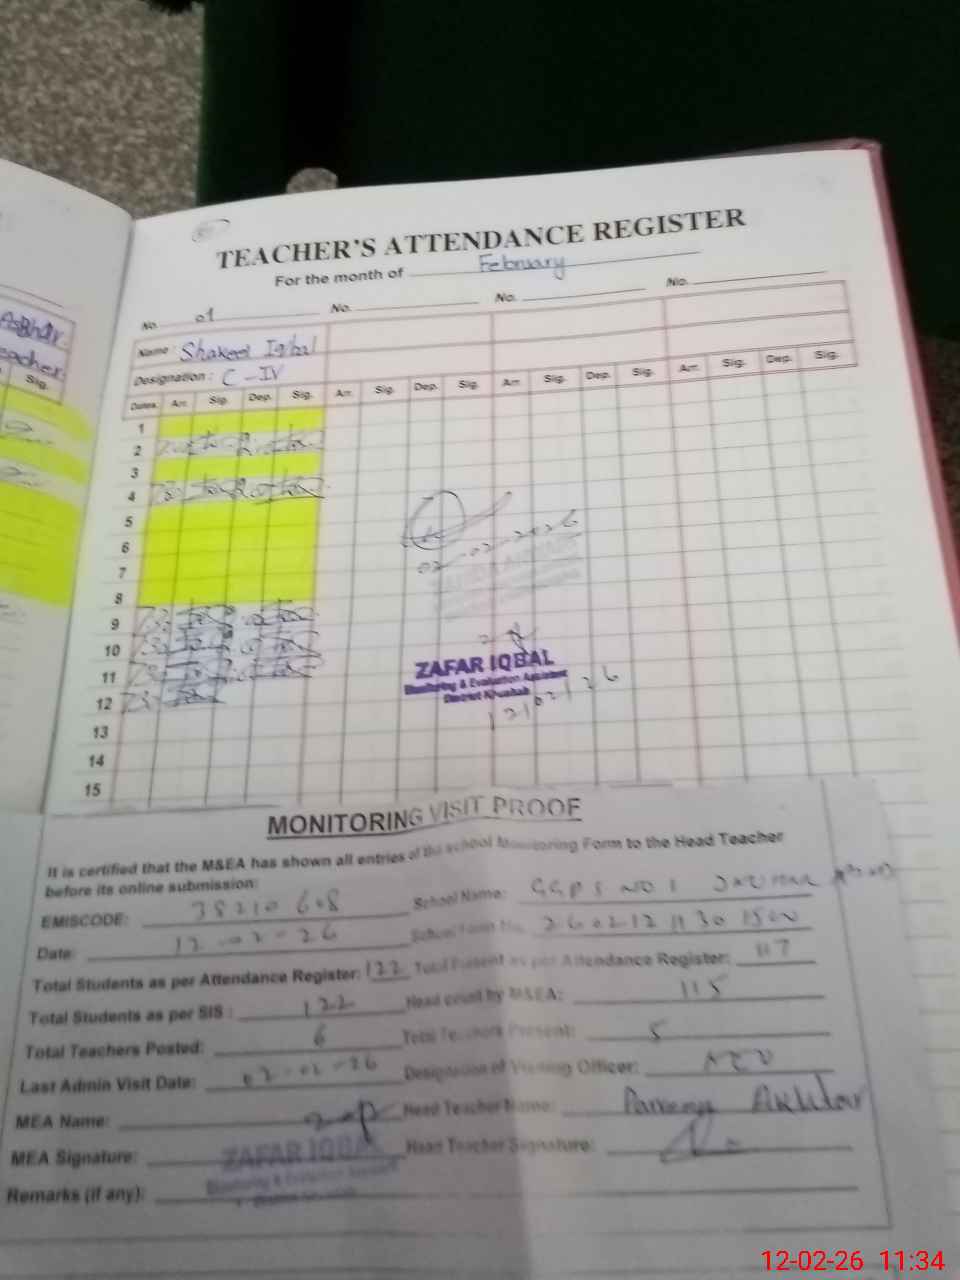 Asghar
Teacher
Sig.
TEACHER'S ATTENDANCE REGISTER
For the month of February
No. 01 No. No. No.
Name: Shakeel Iqbal
Designation: C-IV
Dates Arr. Sig. Dep. Sig. Arr. Sig. Dep. Sig. Arr. Sig. Dep. Sig. Arr. Sig. Dep. Sig.
1
2
3
4
5
6
7
8
9
10
11
12
13
14
15
02-02-2026
ZAFAR IQBAL
Monitoring & Evaluation Assistant
District Khushab
12/02/26
MONITORING VISIT PROOF
It is certified that the M&EA has shown all entries of the school Monitoring Form to the Head Teacher
before its online submission:
EMISCODE: 38210608 School Name: GGPS NO 1
Date: 12-02-26 School Form No.
Total Students as per Attendance Register: 122 Total Present as per Attendance Register: 117
Total Students as per SIS: 122 Head count by M&EA: 115
Total Teachers Posted: 6 Total Teachers Present: 5
Last Admin Visit Date: 02-02-26 Designation of Visiting Officer: AEO
MEA Name: Head Teacher Name: Parveen Akhtar
MEA Signature: Head Teacher Signature:
ZAFAR IQBAL
Monitoring & Evaluation Assistant
Remarks (if any):
12-02-26 11:34